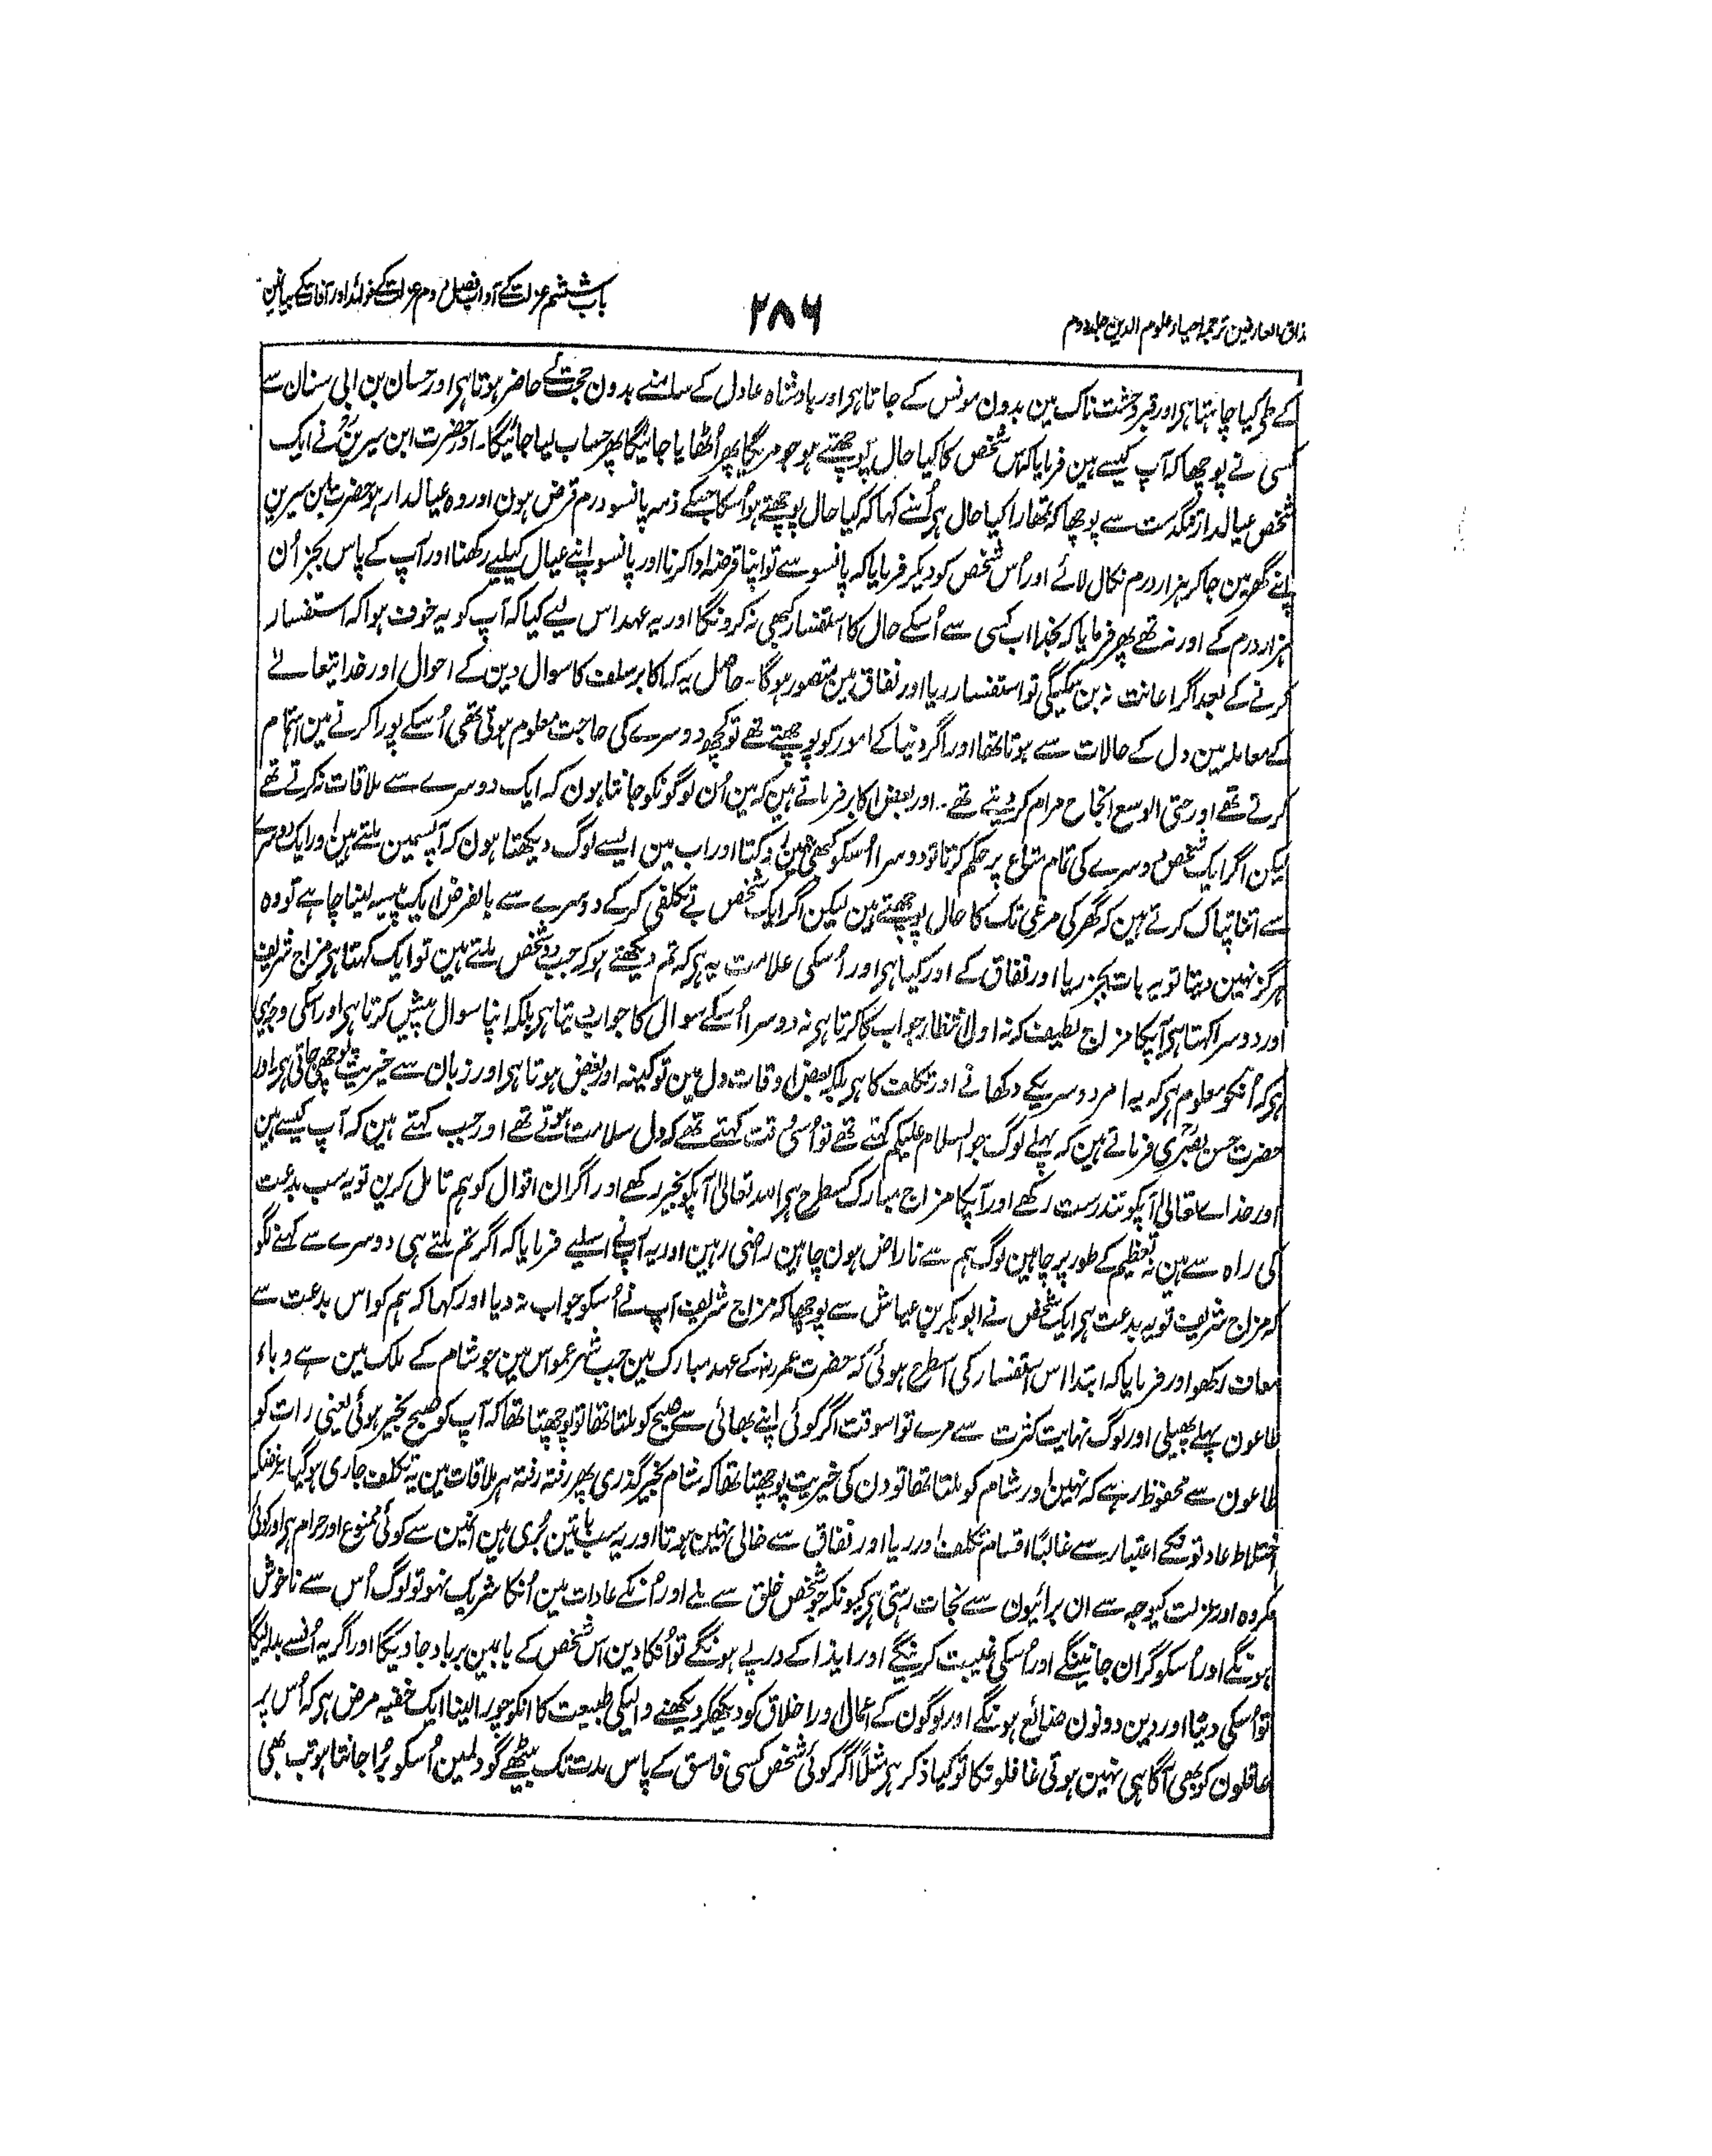 مذاق العارفین ترجمہ احیاء علوم الدین جلد دوم
۲۸۶
باب ششم عزلت کے آداب فصل دوم عزلت کے فوائد اور آفات کے بیان مین
کے طی کیا چاہتا ہی اور قبر وحشت ناک مین بدون مونس کے جاتا ہی اور بادشاہ عادل کے سامنے بدون حجت کے حاضر ہوتا ہی اور حسان بن ابی سنان سے
کسی نے پوچھا کہ آپ کیسے ہین فرمایا کہ اس شخص کا کیا حال پوچھتے ہو جو مریگا پھر اُٹھایا جائیگا پھر حساب لیا جائیگا۔ اور حضرت ابن سیرینؒ نے ایک
شخص عیالدار تنگدست سے پوچھا کہ تمھارا کیا حال ہی اُسنے کہا کہ کیا حال پوچھتے ہو اُسکا جسکے ذمہ پانسو درم قرض ہون اور وہ عیالدار ہو حضرت ابن سیرین
اپنے گھر مین جا کر ہزار درم نکال لائے اور اُس شخص کو دیکر فرمایا کہ پانسو سے تو اپنا قرضہ ادا کرنا اور پانسو اپنے عیال کیلیے رکھنا اور آپ کے پاس بجز اُن
ہزار درم کے اور نہ تھے پھر فرمایا کہ بخدا اب کسی سے اُسکے حال کا استفسار کبھی نہ کرونگا اور یہ عہد اس لیے کیا کہ آپ کو یہ خوف ہوا کہ استفسار
کرنے کے بعد اگر اعانت نہ بن سکیگی تو استفسار ریا اور نفاق مین متصور ہوگا۔ حاصل یہ کہ اکابر سلف کا سوال دین کے احوال اور خدا یتعالے
کے معاملہ مین دل کے حالات سے ہوتا تھا اور اگر دنیا کے امور کو پوچھتے تھے تو کچھ دوسرے کی حاجت معلوم ہوتی تھی اُسکے پورا کرنے مین اہتمام
کرتے تھے اور حتی الوسع انجاح مرام کر دیتے تھے۔ اور بعض اکابر فرماتے ہین کہ مین اُن لوگونکو جانتا ہون کہ ایک دوسرے سے ملاقات نکرتے تھے
لیکن اگر ایک شخص دوسرے کی تمام متاع پر حکم کرتا تو دوسرا اُسکو کبھی نہین روکتا اور اب مین ایسے لوگ دیکھتا ہون کہ آپسمین ملتے ہین اور ایک دوسرے
سے اتنا تپاک کرتے ہین کہ گھر کی مرغی تک کا حال پوچھتے ہین لیکن اگر ایک شخص بے تکلفی کر کے دوسرے سے بالفرض ایک پیسہ لینا چاہے تو وہ
ہر گز نہین دیتا تو یہ بات بجز ریا اور نفاق کے اور کیا ہی اور اُسکی علامت یہ ہی کہ تم دیکھتے ہو کہ جب دو شخص ملتے ہین تو ایک کہتا ہی مزاج شریف
اور دوسرا کہتا ہی آپکا مزاج لطیف کہ نہ اول انتظار جواب کا کرتا ہی نہ دوسرا اُسکے سوال کا جواب دیتا ہی بلکہ اپنا سوال پیش کرتا ہی اور اسکی وجہ یہی
ہی کہ اُنکو معلوم ہی کہ یہ امر دوسریکے دکھانے اور تکلف کا ہی بلکہ بعض اوقات دل مین تو کینہ اور بغض ہوتا ہی اور زبان سے خیریت پوچھی جاتی ہی اور
حضرت حسن بصریؒ فرماتے ہین کہ پہلے لوگ جو السلام علیکم کہتے تھے تو اُسی وقت کہتے تھے کہ دل سلامت ہوتے تھے اور جب کہتے ہین کہ آپ کیسے ہین
اور خداے تعالیٰ آپکو تندرست رکھے اور آپکا مزاج مبارک کسطرح ہی اللہ تعالیٰ آپکو بخیر رکھے اور اگر ان اقوال کو ہم تامل کرین تو یہ سب بدعت
کی راہ سے ہین نہ تعظیم کے طور پر چاہین لوگ ہم سے ناراض ہون چاہین رضی رہین اور یہ آپنے اسلیے فرمایا کہ اگر تم ملتے ہی دوسرے سے کہنے لگو
کہ مزاج شریف تو یہ بدعت ہی ایک شخص نے ابو بکر بن عیاش سے پوچھا کہ مزاج شریف آپ نے اُسکو جواب نہ دیا اور کہا کہ ہم کو اس بدعت سے
معاف رکھو اور فرمایا کہ ابتدا اس استفسار کی اسطرح ہوئی کہ حضرت عمر رضہ کے عہد مبارک مین جب شہر عمواس مین جو شام کے ملک مین ہے وباء
طاعون پہلے پھیلی اور لوگ نہایت کثرت سے مرے تو اسوقت اگر کوئی اپنے بھائی سے صبح کو ملتا تھا تو پوچھتا تھا کہ آپ کو صبح بخیر ہوئی یعنی رات کو
طاعون سے محفوظ رہے کہ نہین اور شام کو ملتا تھا تو دن کی خیریت پوچھتا تھا کہ شام بخیر گذری پھر رفتہ رفتہ ہر ملاقات مین یہ تکلف جاری ہو گیا غرضکہ
اختلاط عادتونکے اعتبار سے غالباً اقسام تکلف اور ریا اور نفاق سے خالی نہین ہوتا اور یہ سب باتین بُری ہین انمین سے کوئی ممنوع اور حرام ہی اور کوئی
مکروہ اور عزلت کیوجہ سے ان برائیون سے نجات رہتی ہی کیونکہ جو شخص خلق سے ملے اور اُنکے عادات مین اُنکا شریک نہو تو لوگ اُس سے ناخوش
ہونگے اور اُسکو گران جانینگے اور اُسکی غیبت کرینگے اور ایذا کے درپے ہونگے تو اُنکا دین اس شخص کے بابمین برباد جاویگا اور اگر یہ اُنسے بدلا لیگا
تو اُسکی دنیا اور دین دونون ضائع ہونگے اور لوگون کے اعمال اور اخلاق کو دیکھکر دیکھنے والیکی طبیعت کا انکو چورالینا ایک خفیہ مرض ہی کہ اُس پر
عاقلون کو بھی آگاہی نہین ہوتی غافلونکا تو کیا ذکر ہی مثلاً اگر کوئی شخص کسی فاسق کے پاس مدت تک بیٹھے گو دلمین اُسکو بُرا جانتا ہو تب بھی